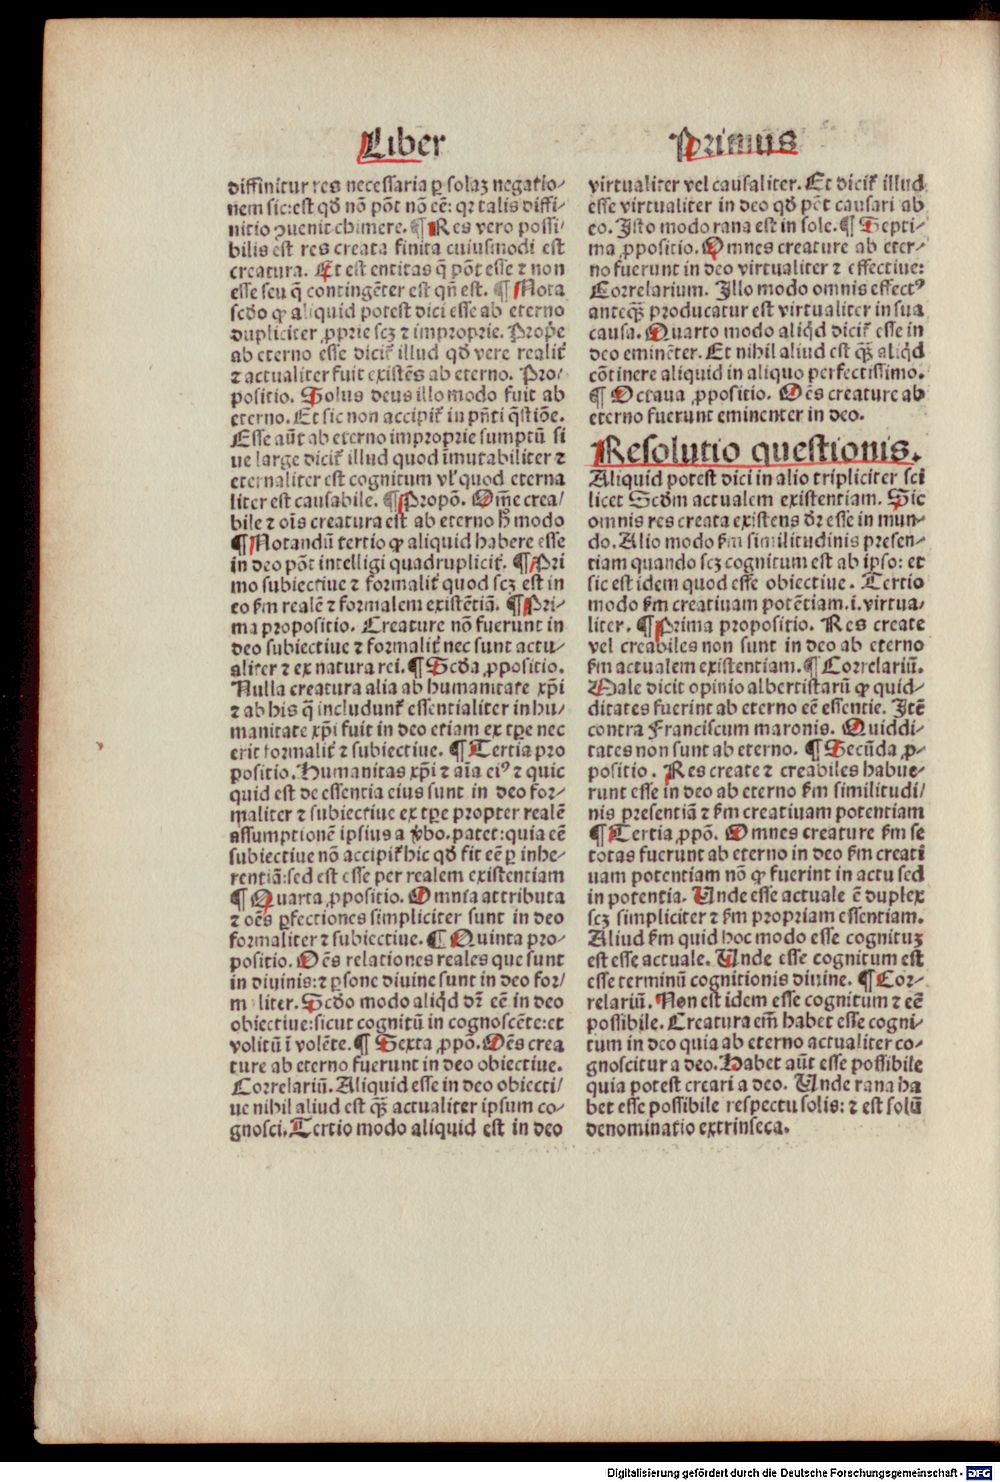 Liber
Primus
diffinitur res necessaria ꝑ solaꝫ negatio⸗
nem sic:est qď nō pōt nō eē: qꝛ talis diffi⸗
nitio ꝯuenit chimere.¶ Res vero possi⸗
bilis est res creata finita cuiusmodi est
creatura. Et est entitas q̄ pōt esse ⁊ non
esse seu q̄ contingēter est qn̄ est. ¶ Nota
scďo ꝙ aliquid potest dici esse ab eterno
dupliciter ꝓprie scꝫ ⁊ improprie. Prop̄e
ab eterno esse dicit᷑ illud qď vere realit᷑
⁊ actualiter fuit existēs ab eterno. Pro⸗
positio. Solus deus illo modo fuit ab
eterno. Et sic non accipit᷑ in pn̄ti q̄stiōe.
Esse aūt ab eterno improprie sumptū si
ue large dicit᷑ illud quod īmutabiliter ⁊
eternaliter est cognitum vl᷑ quod eterna
liter est causabile. ¶Propō. Om̄e crea⸗
bile ⁊ oīs creatura est ab eterno h̊ modo
¶Notandū tertio ꝙ aliquid habere esse
in deo pōt intelligi quadruplicit᷑. ¶Pri
mo subiectiue ⁊ formalit᷑ quod scꝫ est in
eo ẜm realē ⁊ formalem existētiā. ¶Pri⸗
ma propositio. Creature nō fuerunt in
deo subiectiue ⁊ formalit᷑ nec sunt actu⸗
aliter ⁊ ex natura rei.¶ Scďa ꝓpositio.
Nulla creatura alia ab humanitate xp̄i
⁊ ab his q̄ includunt᷑ essentialiter in hu⸗
manitate xp̄i fuit in deo etiam ex tp̄e nec
erit formalit᷑ ⁊ subiectiue. ¶ Tertia pro
positio. Humanitas xp̄i ⁊ aīa eiꝰ ⁊ quic
quid est de essentia eius sunt in deo for⸗
maliter ⁊ subiectiue ex tp̄e propter realē
assumptionē ipsius a v̄bo.patet:quia eē
subiectiue nō accipit᷑ hic qď fit eē ꝑ inhe⸗
rentiā:sed est esse per realem existentiam
¶ Quarta ꝓpositio. Omnia attributa
⁊ oēs ꝑfectiones simpliciter sunt in deo
formaliter ⁊ subiectiue. ¶ Quinta pro⸗
positio. Oēs relationes reales que sunt
in diuinis:⁊ ꝑsone diuine sunt in deo for⸗
m liter. Scďo modo aliqď dr̄ eē in deo
obiectiue:sicut cognitū in cognoscēte:et
volitū ī volēte. ¶ Sexta ꝓpō. Oēs crea
ture ab eterno fuerunt in deo obiectiue.
Correlariū. Aliquid esse in deo obiecti⸗
ue nihil aliud est qꝫ̄ actualiter ipsum co⸗
gnosci. Tertio modo aliquid est in deo
virtualiter vel causaliter. Et dicit᷑ illud
esse virtualiter in deo qď pōt causari ab
eo. Isto modo rana est in sole.¶ Septi⸗
ma ꝓpositio. Omnes creature ab eter⸗
no fuerunt in deo virtualiter ⁊ effectiue:
Correlarium. Illo modo omnis effectꝰ
anteqꝫ̄ producatur est virtualiter in sua
causa. Quarto modo aliqď dicit᷑ esse in
deo eminēter. Et nihil aliud est qꝫ̄ aliqď
cōtinere aliquid in aliquo perfectissimo.
¶ Octaua ꝓpositio. Oēs creature ab
eterno fuerunt eminenter in deo.
Resolutio questionis.
Aliquid potest dici in alio tripliciter sci
licet Scďm actualem existentiam. Sic
omnis res creata existens dr̄ esse in mun⸗
do. Alio modo ẜm similitudinis presen⸗
tiam quando scꝫ cognitum est ab ipso: et
sic est idem quod esse obiectiue. Tertio
modo ẜm creatiuam potētiam.i.virtua⸗
liter. ¶Prima propositio. Res create
vel creabiles non sunt in deo ab eterno
ẜm actualem existentiam.¶ Correlariū.
Male dicit opinio albertistarū ꝙ quid⸗
ditates fuerint ab eterno eē essentie. Itē
contra Franciscum maronis. Quiddi⸗
tates non sunt ab eterno. ¶ Secūda ꝓ⸗
positio. Res create ⁊ creabiles habue⸗
runt esse in deo ab eterno ẜm similitudi⸗
nis presentiā ⁊ ẜm creatiuam potentiam
¶ Tertia ꝓpō. Omnes creature ẜm se
totas fuerunt ab eterno in deo ẜm creati
uam potentiam nō ꝙ fuerint in actu sed
in potentia. Unde esse actuale ē duplex
scꝫ simpliciter ⁊ ẜm propriam essentiam.
Aliud ẜm quid hoc modo esse cognituꝫ
est esse actuale. Unde esse cognitum est
esse terminū cognitionis diuine. ¶ Cor⸗
relariū. Non est idem esse cognitum ⁊ eē
possibile. Creatura em̄ habet esse cogni⸗
tum in deo quia ab eterno actualiter co⸗
gnoscitur a deo. Habet aūt esse possibile
quia potest creari a deo. Unde rana ha
bet esse possibile respectu solis: ⁊ est solū
denominatio extrinseca.
Digitalisierung gefördert durch die Deutsche Forschungsgemeinschaft - DFG